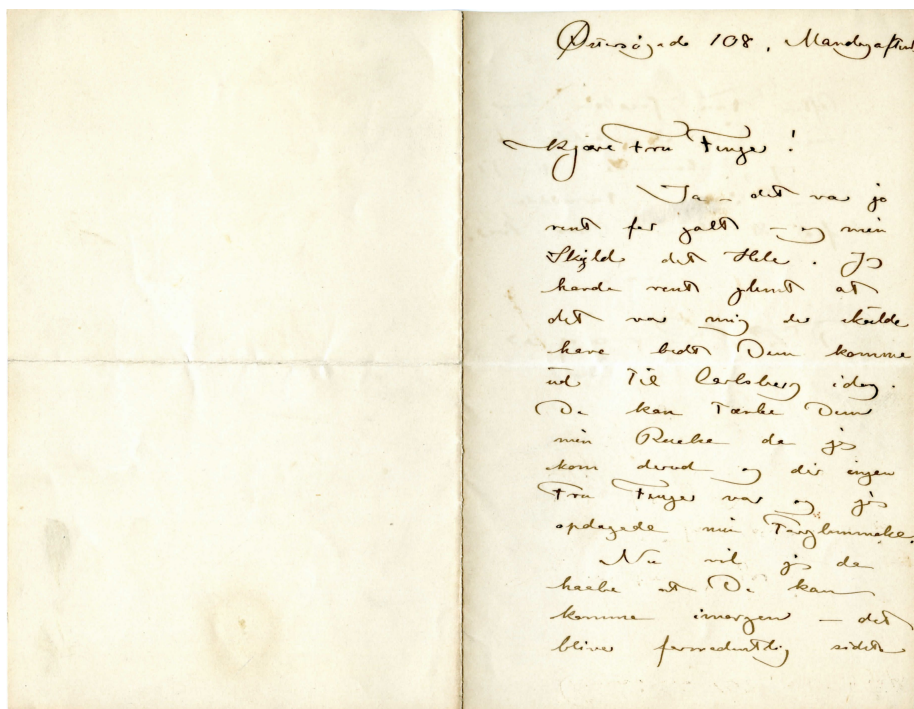 Østersøgade 108, Mandagaften
Kjære Fru Finger!
Ja – det var jo
rent for galt – og min
Skyld det Hele. Jeg
havde rent glemt at
det var mig der skulde
have bedt Dem komme
ud til Carlsberg idag.
De kan tænke Dem
min Rædsel da jeg
kom derud og der ingen
Fru Finger var og jeg
opdagede min Forglemmelse.
Nu vil jeg da
haabe at De kan
komme imorgen – det
bliver formodentlig sidste